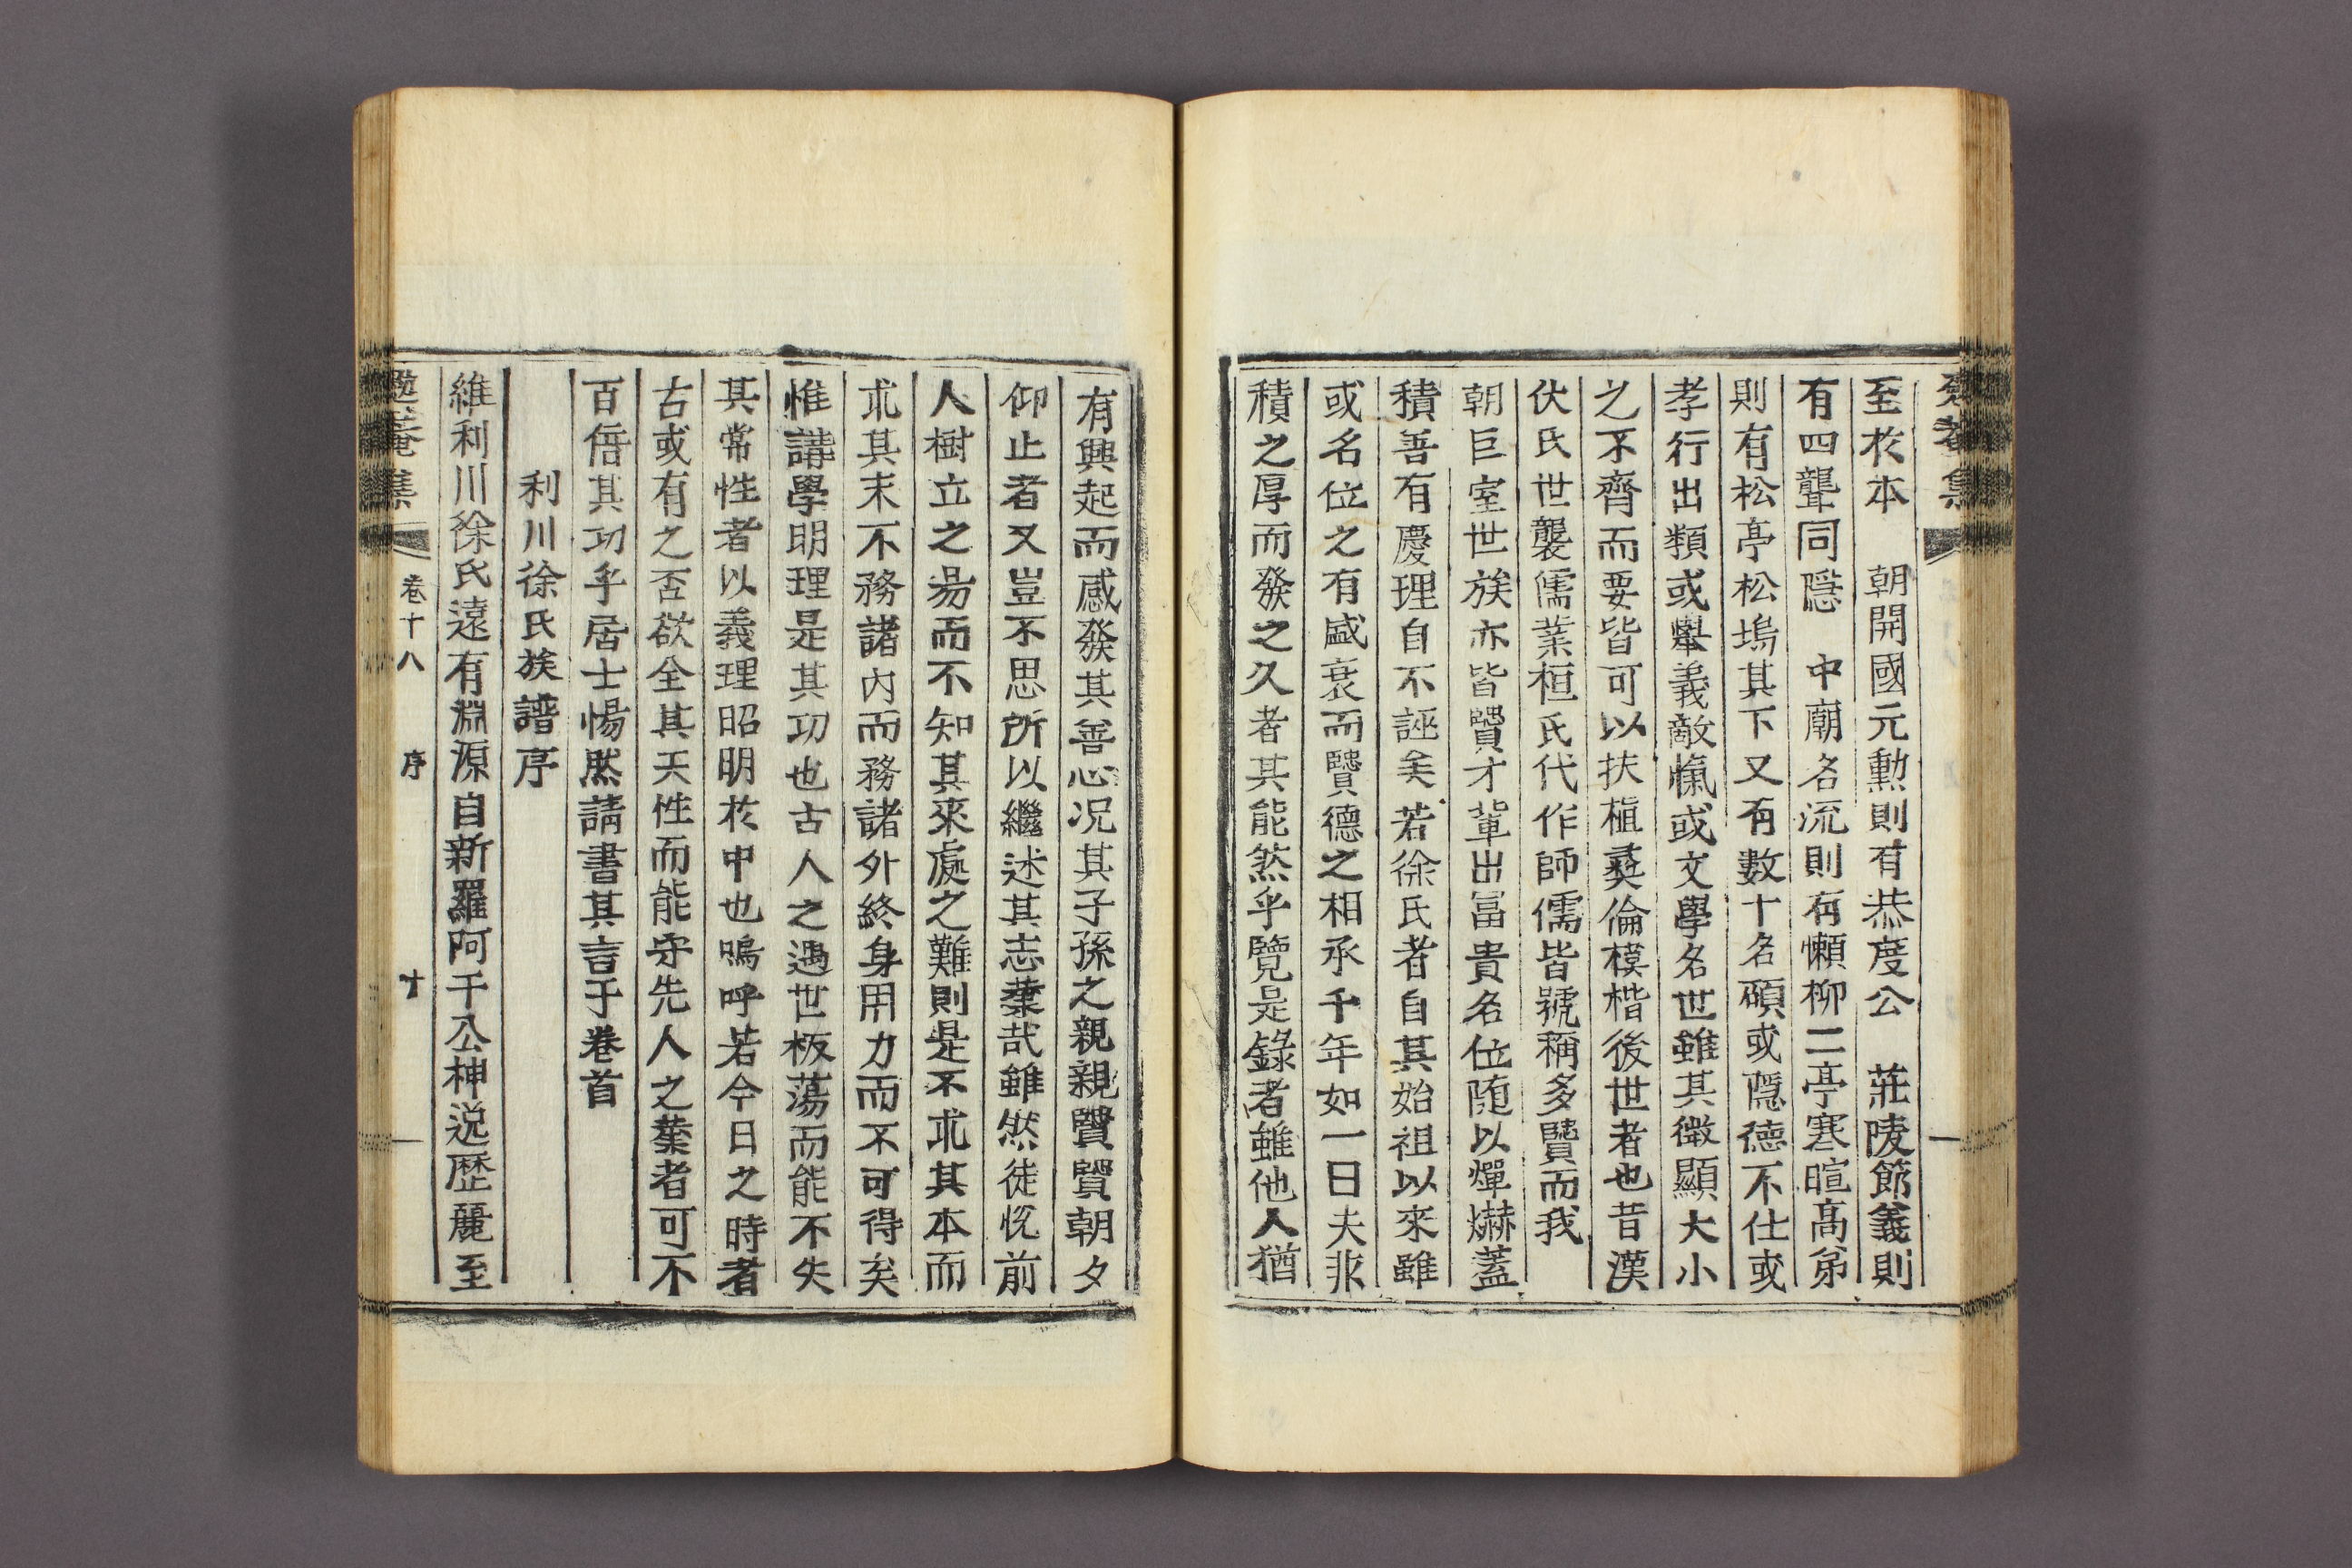 至於本　朝開國元勳則有恭度公　莊陵節義則
有四聾同隱　中廟名流則有懶柳二亭寒暄高弟
則有松亭松塢其下又有數十名碩或隱德不仕或
孝行出類或擧義敵愾或文學名世雖其微顯大小
之不齊而要皆可以扶植彛倫模楷後世者也昔漢
伏氏世襲儒業桓氏代作師儒皆號稱多賢而我
朝巨室世族亦皆賢才輩出冨貴名位随以燀爀蓋
積善有慶理自不誣矣若徐氏者自其始祖以來雖
或名位之有盛衰而賢德之相承千年如一日夫非
積之厚而發之久者其能然乎覽是錄者雖他人猶
有興起而感發其善心况其子孫之親親賢賢朝夕
仰止者又豈不思所以繼述其志業哉雖然徒恱前
人樹立之易而不知其來處之難則是不求其本而
求其末不務諸內而務諸外終身用力而不可得矣
惟講學明理是其功也古人之遇世板蕩而能不失
其常性者以義理昭明於中也嗚呼若今日之時者
古或有之否欲全其天性而能守先人之業者可不
百倍其功乎居士惕然請書其言于卷首
利川徐氏族譜序
維利川徐氏遠有淵源自新羅阿干公神逸歷麗至
卷十八　序　十